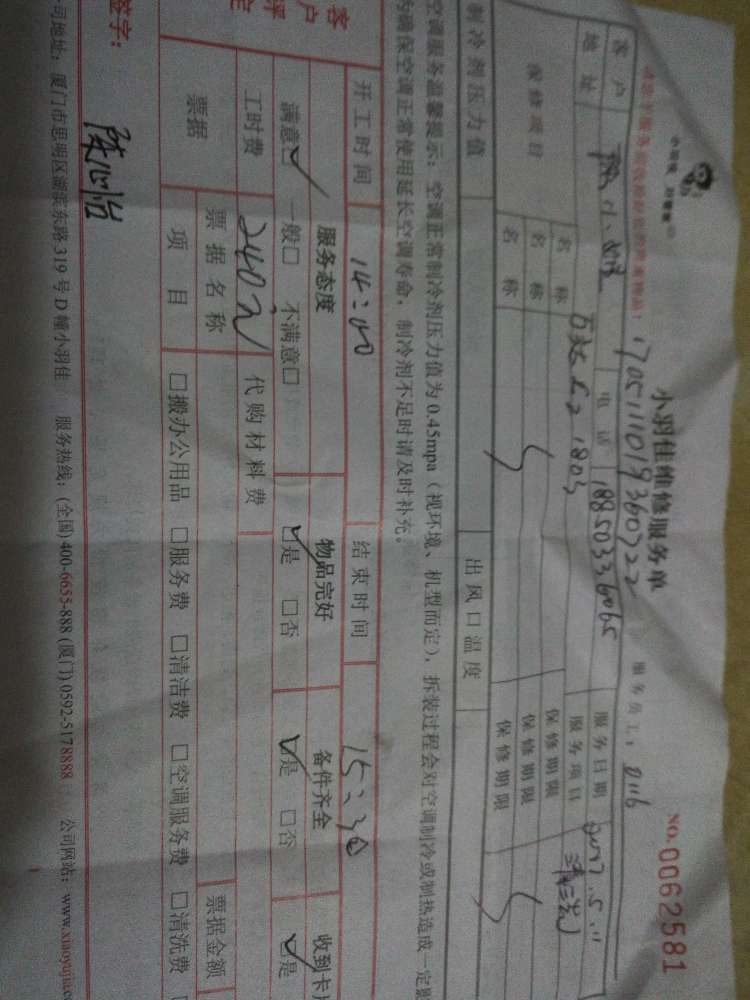 小羽佳维修服务单
NO. 0062581
1705111019360722
服务员工: 0116
客户 电话 18850336065 服务日期 2017.5.11
地址 万达C2 1803 服务项目 清洗
保修项目 名称 保修期限
名称 保修期限
名称 保修期限
制冷剂压力值 出风口温度
空调服务温馨提示: 空调正常制冷剂压力值为 0.45mpa (视环境、机型而定), 拆装过程会对空调制冷或制热造成一定
为确保空调正常使用延长空调寿命, 制冷剂不足时请及时补充。
开工时间 14:00 结束时间 15:30
客户评定 服务态度 物品完好 备件齐全 收到卡
满意☑ 一般□ 不满意□ ☑是 □否 ☑是 □否 ☑是
工时费 240元 代购材料费
票据 票据名称 票据金额
项目 □搬办公用品 □服务费 □清洁费 □空调服务费 □清洗费
签字: 陈心怡
司地址: 厦门市思明区湖滨东路 319 号 D 幢小羽佳 服务热线: (全国) 400-6655-888 (厦门) 0592-5178888 公司网站: www.xiaoyujia.co